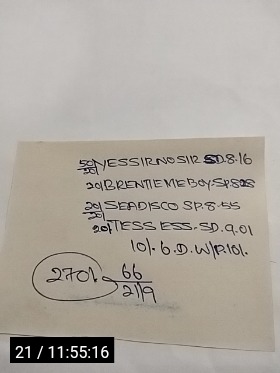 50/ YESSIRNOSIR SD.8.16
20/
20/ BRENTIEMEBOY.SP.8.28
20/ SEADISCO SP.8.55
20/
20/ TESS ESS.-SD.9.01
10/. 6.D.W/P.10/.
270/. 66
2/19
21 / 11:55:16